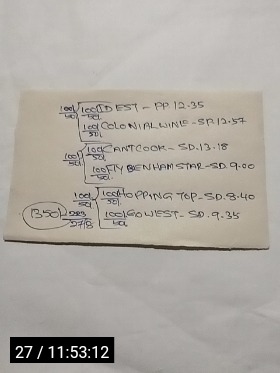 100/50 100/50 ID EST - PP. 12.35
100/50 COLONIAL WINE - SP. 12.57
100/50 100/50 CANTCOOK - SD. 13.18
100/50 BENHAM STAR - SD 9.00
100/50 100/50 HOPPING TOP - SD. 8.40
1350/
100/50 GO WEST - SD. 9.35
27 / 11:53:12